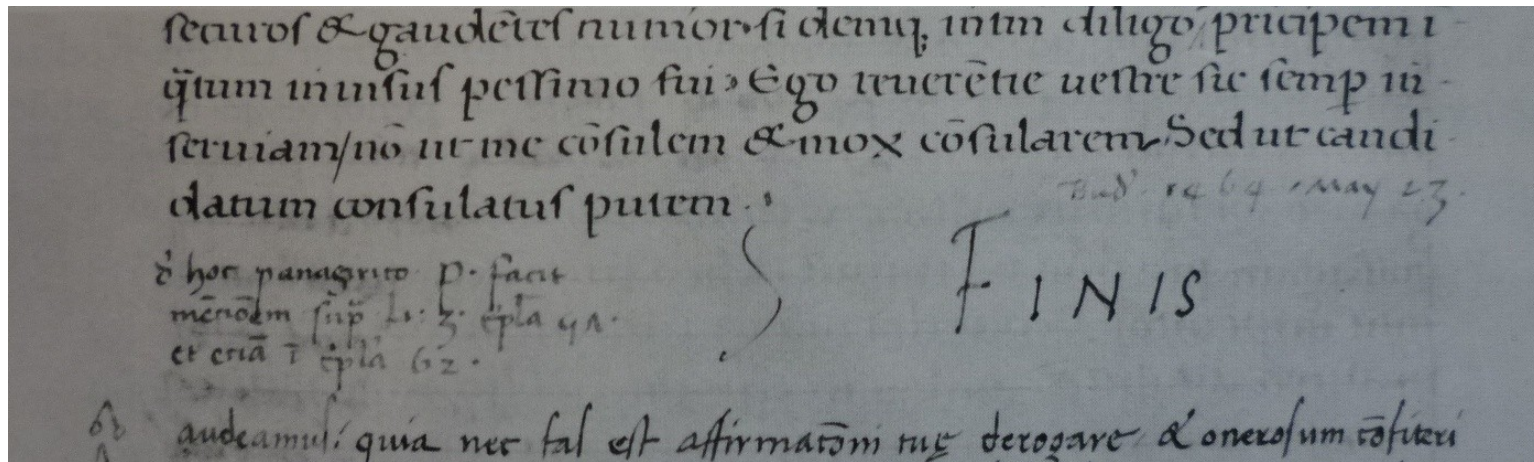 securos & gaudētes numor· si deniq; intm diligo / pricipem i
q̄tum inuisus pessimo fui · Ego reuerētie uestre sic semp in
seruiam / nō ut me cōsulem & mox cōsularem Sed ut candi
datum consulatus putem ·
Bud' 1464 · May 23 ·
FINIS
d' hoc panagirico p. facit
mēnoēm sup Li: 3. ep̄la 41.
et etiā ī ep̄la 62 ·
audeamus: quia nec fas est affirmatōni tuę derogare & onerosum cōfiteri